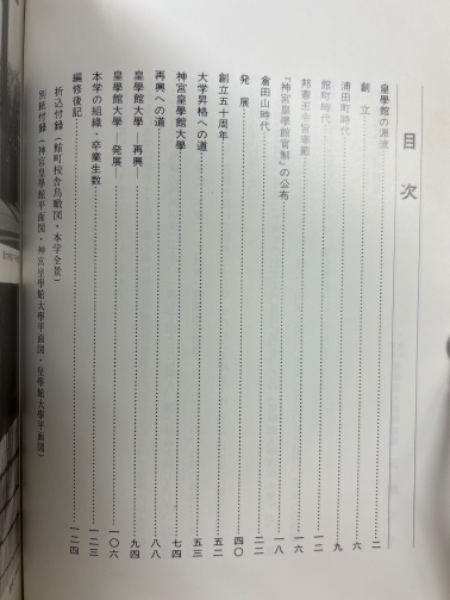 目次
皇學館の源流……二
創立……六
浦田町時代……九
館町時代……一二
邦憲王令旨奉戴……一六
『神宮皇學館官制』の公布……一八
倉田山時代……二二
発展……四〇
創立五十周年……五二
大学昇格への道……五三
神宮皇學館大學……七四
再興への道……八八
皇學館大學―再興―……九四
皇學館大學―発展―……一〇六
本学の組織・卒業生数……一二三
編修後記……一二四
折込付録(館町校舎鳥瞰図・本学全景)
別紙付録(神宮皇學館平面図・神宮皇學館大學平面図・皇學館大學平面図)